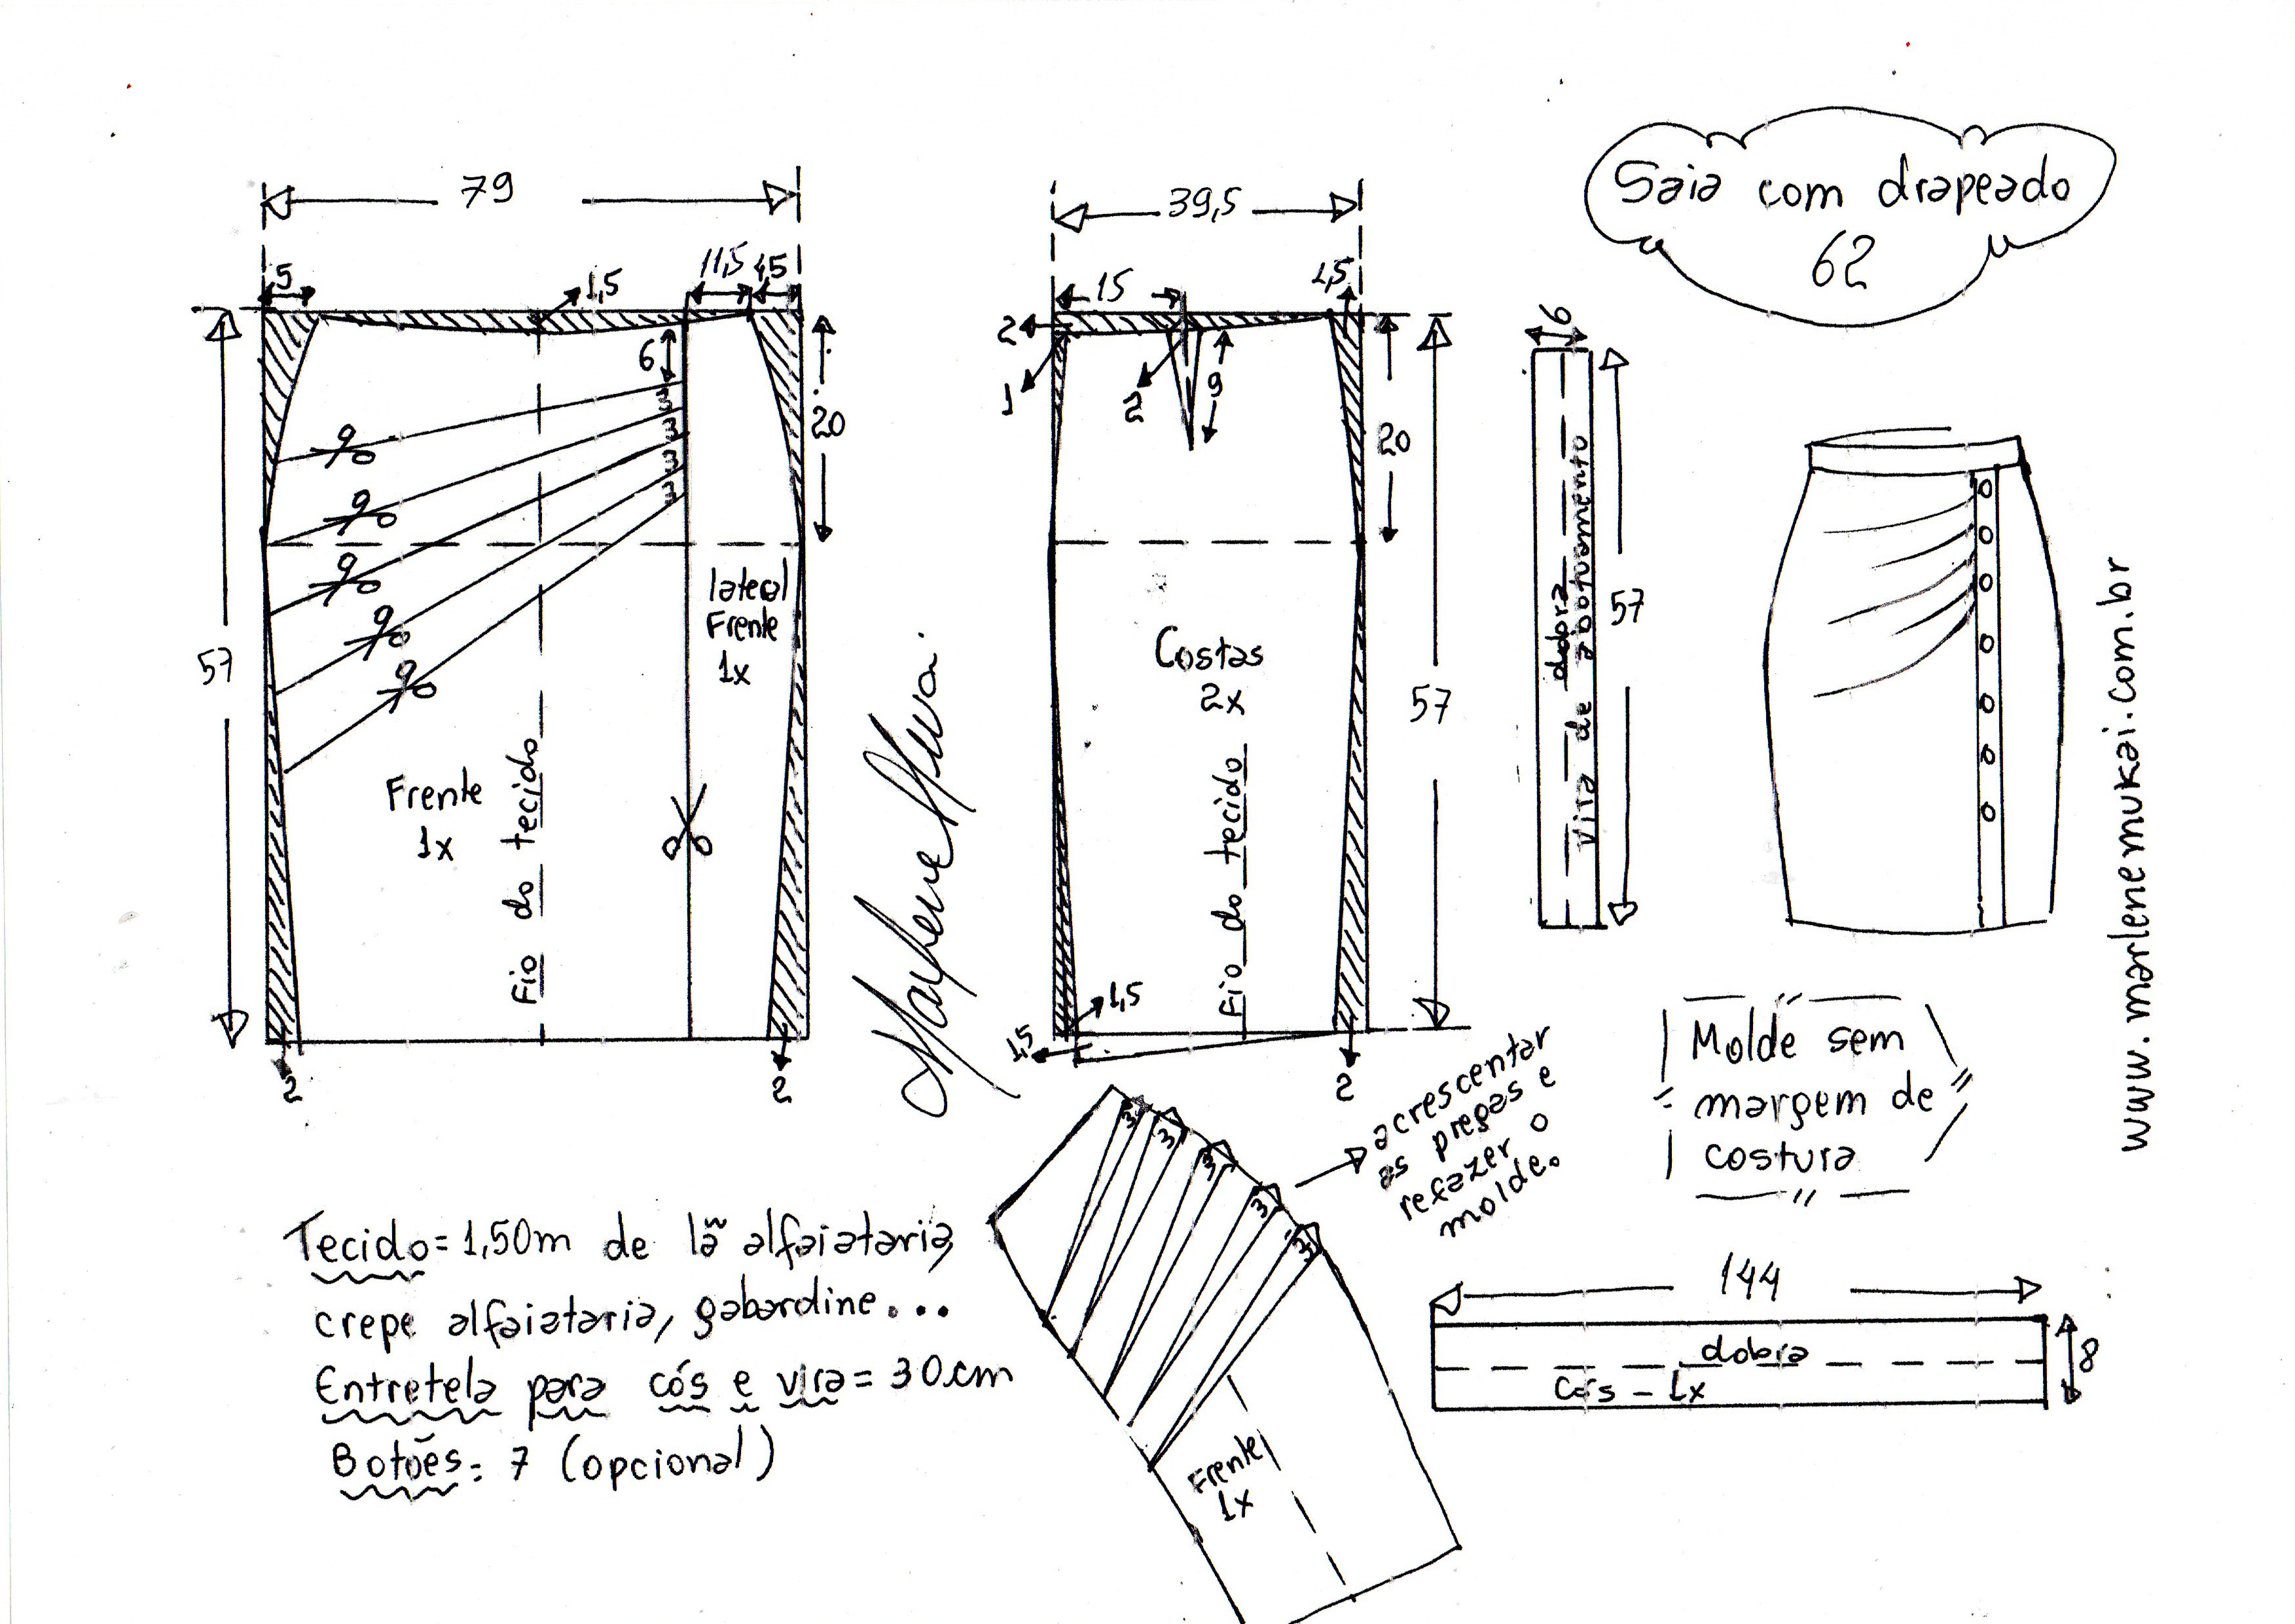 Saia com drapeado
62
79
5
1,5
11,5
4,5
6
3
3
3
3
20
57
lateral
Frente
1x
Frente
1x
Fio do tecido
2
2
39,5
15
1,5
2
1
2
9
20
57
Costas
2x
Fio do tecido
1,5
1,5
2
6
dobra
Vira de abotuamento
57
www.marlenemukai.com.br
Molde sem
margem de
costura
acrescentar
as pregas e
refazer o
molde.
3
3
3
3
3
Frente
1x
144
dobra
8
Cós - 1x
Tecido = 1,50m de lã alfaiataria,
crepe alfaiataria, gabardine...
Entretela para cós e vira = 30cm
Botões: 7 (opcional)